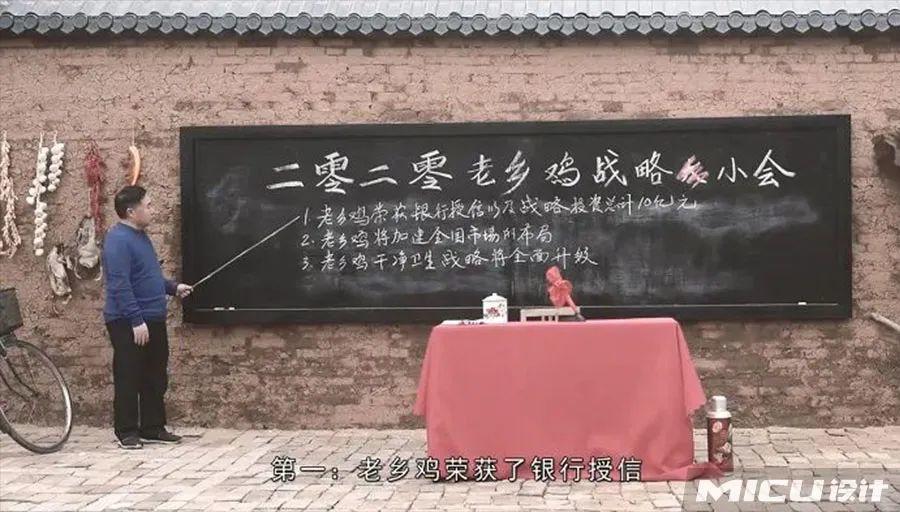 二零二零老乡鸡战略小会
1. 老乡鸡荣获银行授信以及战略投资总计10亿元
2. 老乡鸡将加速全国市场的布局
3. 老乡鸡干净卫生战略将全面升级
第一：老乡鸡荣获了银行授信
MICU设计